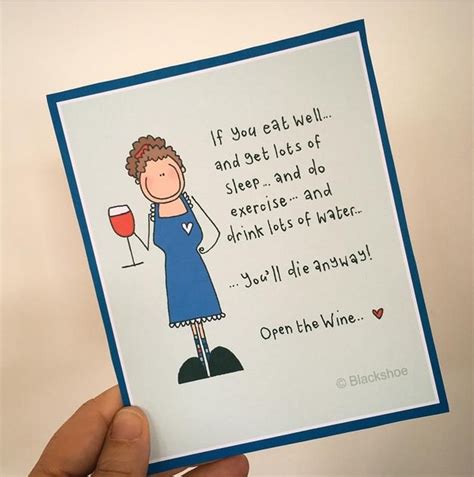 If you eat well...
and get lots of
sleep... and do
exercise... and
drink lots of water...
...You'll die anyway!
Open the Wine..
© Blackshoe